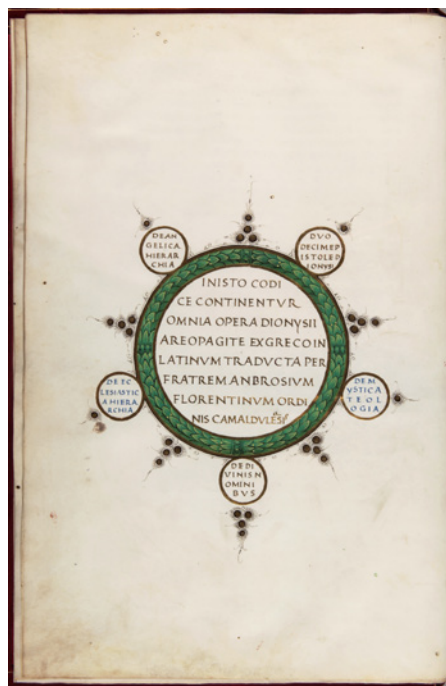 DE AN
GELICA
HIERAR
CHIA
DVO
DECIM EP
ISTOLE D
IONYSII
IN ISTO CODI
CE CONTINENTVR
OMNIA OPERA DIONYSII
AREOPAGITE EX GRECO IN
LATINVM TRADVCTA PER
FRATREM ANBROSIVM
FLORENTINVM ORDI
NIS CAMALDVLĒSI
DE EC
LESIASTIC
A HIERA
RCHIA
DE M
YSTICA
TEOL
OGIA
DE DI
VINIS N
OMINI
BVS